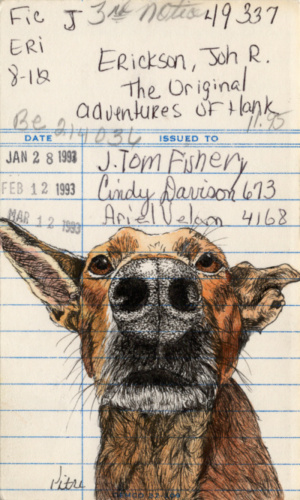 Fic J 3rd notice 49337
ERI
8-12
Erickson, Joh R.
The Original
adventures of Hank
11.95
Be 214036
DATE ISSUED TO
JAN 28 1993 J. Tom Fishery
FEB 12 1993 Cindy Davison 673
MAR 12 1993 Ariel Nelson 4168
Pitre